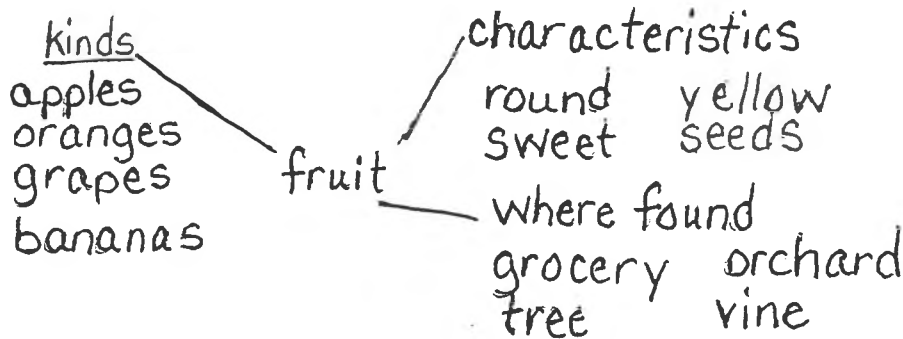 kinds
apples
oranges
grapes
bananas
fruit
characteristics
round yellow
sweet seeds
where found
grocery orchard
tree vine